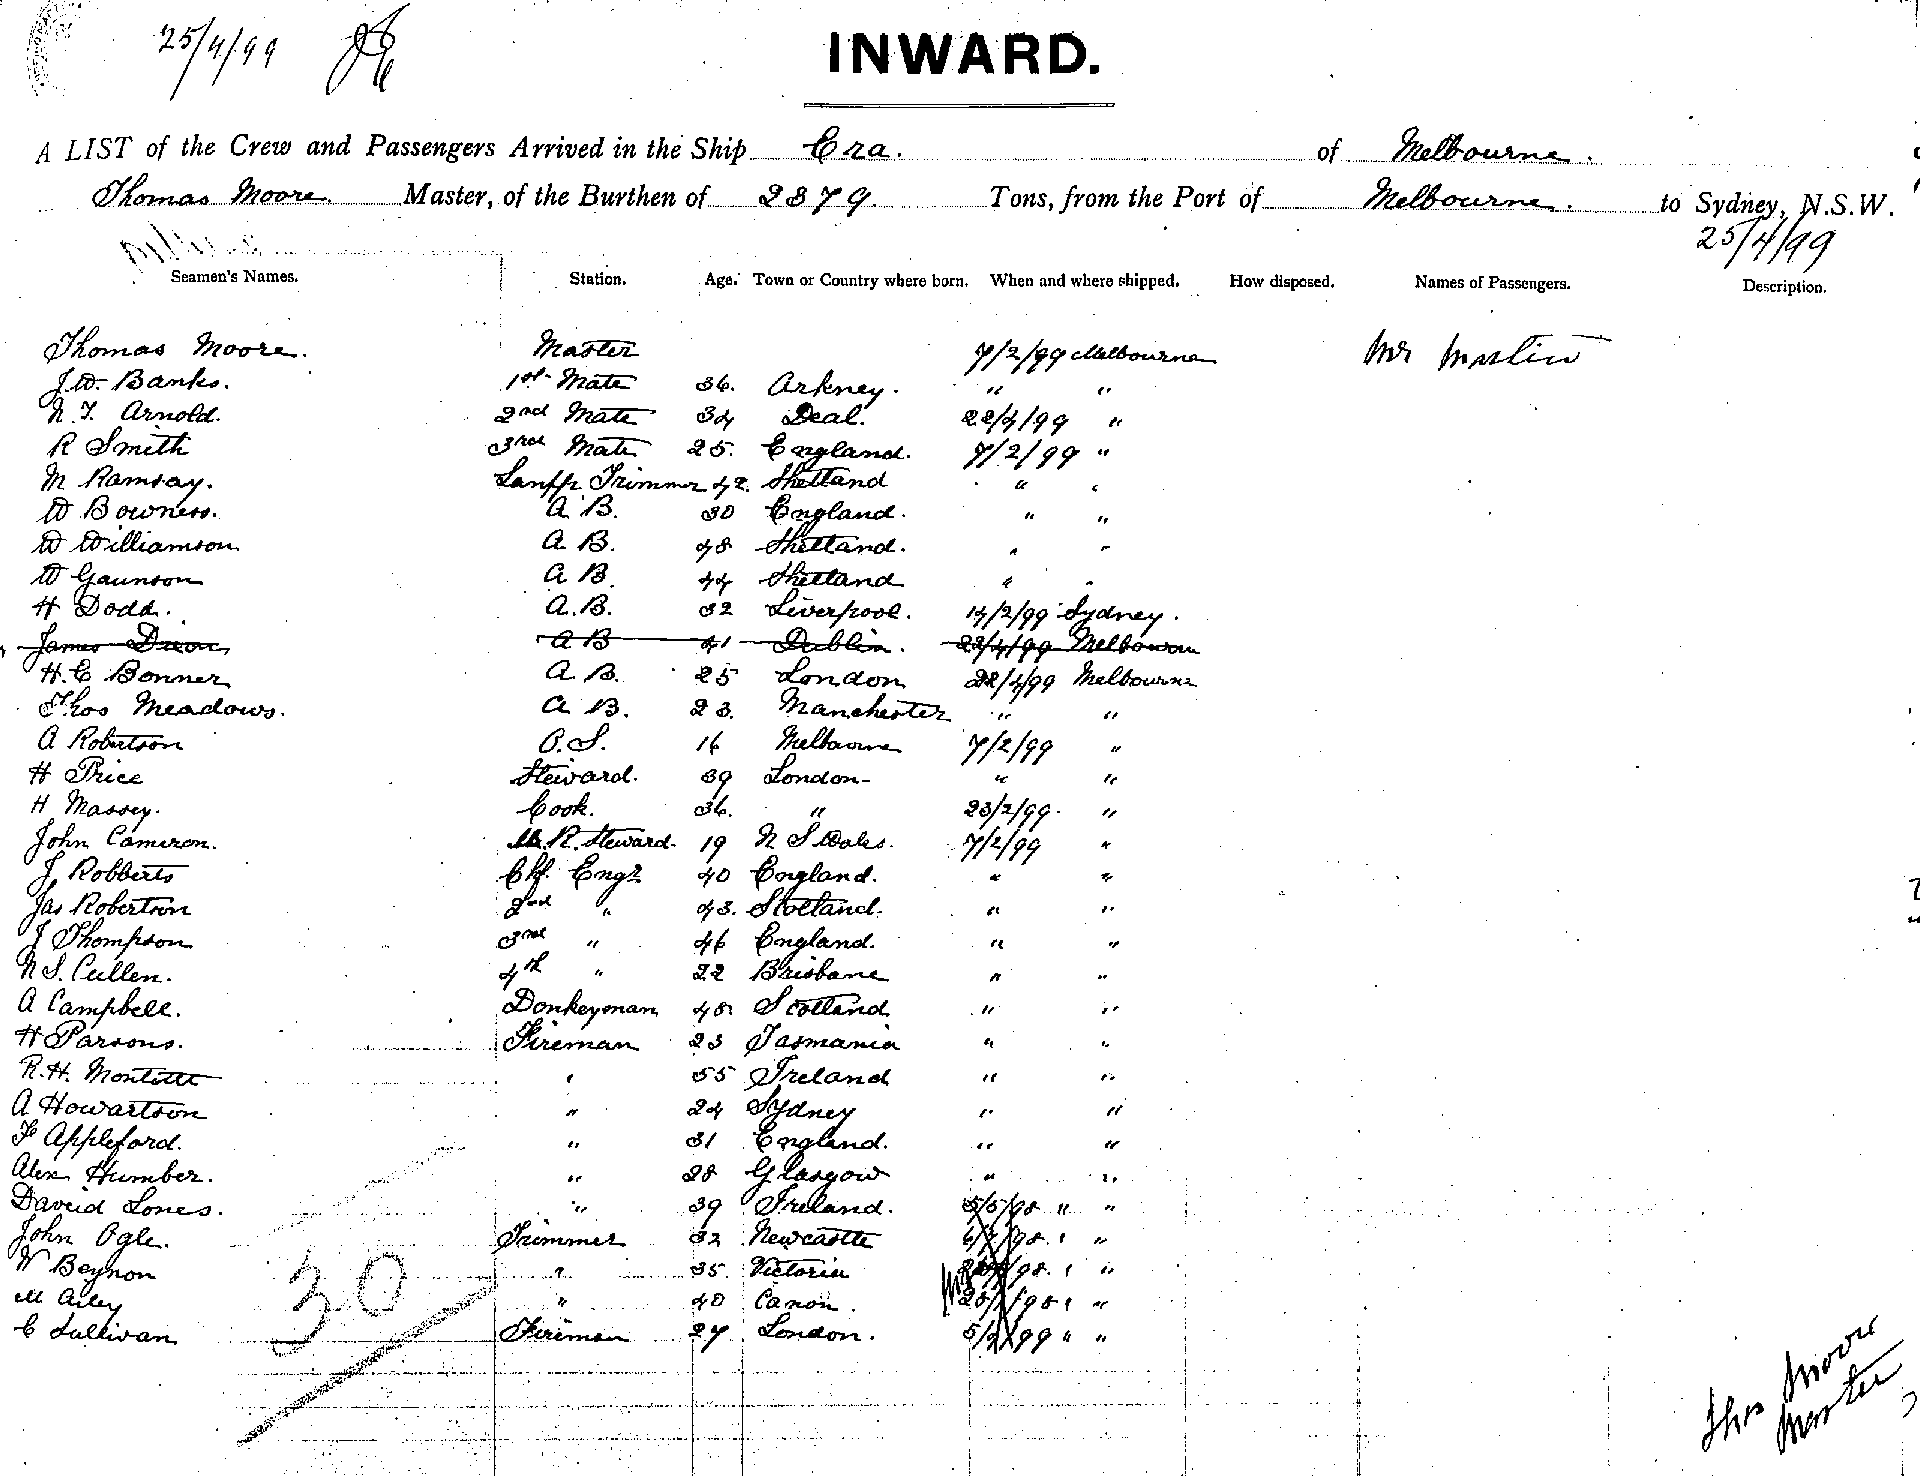 25/4/99
INWARD.
A LIST of the Crew and Passengers Arrived in the Ship Era. of Melbourne.
Thomas Moore Master, of the Burthen of 2379. Tons, from the Port of Melbourne. to Sydney, N.S.W.
25/4/99
Seamen's Names. Station. Age. Town or Country where born. When and where shipped. How disposed. Names of Passengers. Description.
Thomas Moore. Master 7/2/99 Melbourne Mr Martin
J.W. Banks. 1st Mate 36. Arkney. " "
N.T. Arnold. 2nd Mate 34 Deal. 22/4/99 "
R Smith 3rd Mate 25. England. 7/2/99 "
M Ramsay. Lamp Trimmer 42. Shetland " "
W Bowness. A B. 30 England. " "
W Williamson A B. 48 Shetland. " "
W Gaunson A B. 44 Shetland " "
H Dodd. A.B. 32 Liverpool. 14/2/99 Sydney.
James Dixon A B 41 Dublin. 22/4/99 Melbourne
H.E Bonner A B. 25 London 22/4/99 Melbourne
Thos Meadows. A B. 23. Manchester " "
A Robertson O.S. 16 Melbourne 7/2/99 "
H Price Steward. 39 London- " "
H Massey. Cook. 36. " 23/2/99. "
John Cameron. M.R. Steward. 19 N S Wales. 7/2/99 "
J Robberts Chf. Engr 40 England. " "
Jas Robertson 2nd " 43. Scotland. " "
J Thompson 3rd " 46 England. " "
N S. Cullen. 4th " 22 Brisbane " "
A Campbell. Donkeyman 48 Scotland " "
H Parsons. Fireman 23 Tasmania " "
R.H. Monteith " 55 Ireland " "
A Howartson " 24 Sydney " "
F Appleford. " 31 England. " "
Alex Humber. " 28 Glasgow " "
David Lones. " 39 Ireland. 5/5/98 " "
John Ogle. Trimmer 32 Newcastle /98 " "
W Beynon " 35. Victoria /98. " "
M Arley " 40 Canon. /98 " "
C Sullivan Fireman 27 London. 5/2/99 " "
30
Thos Moore
Master